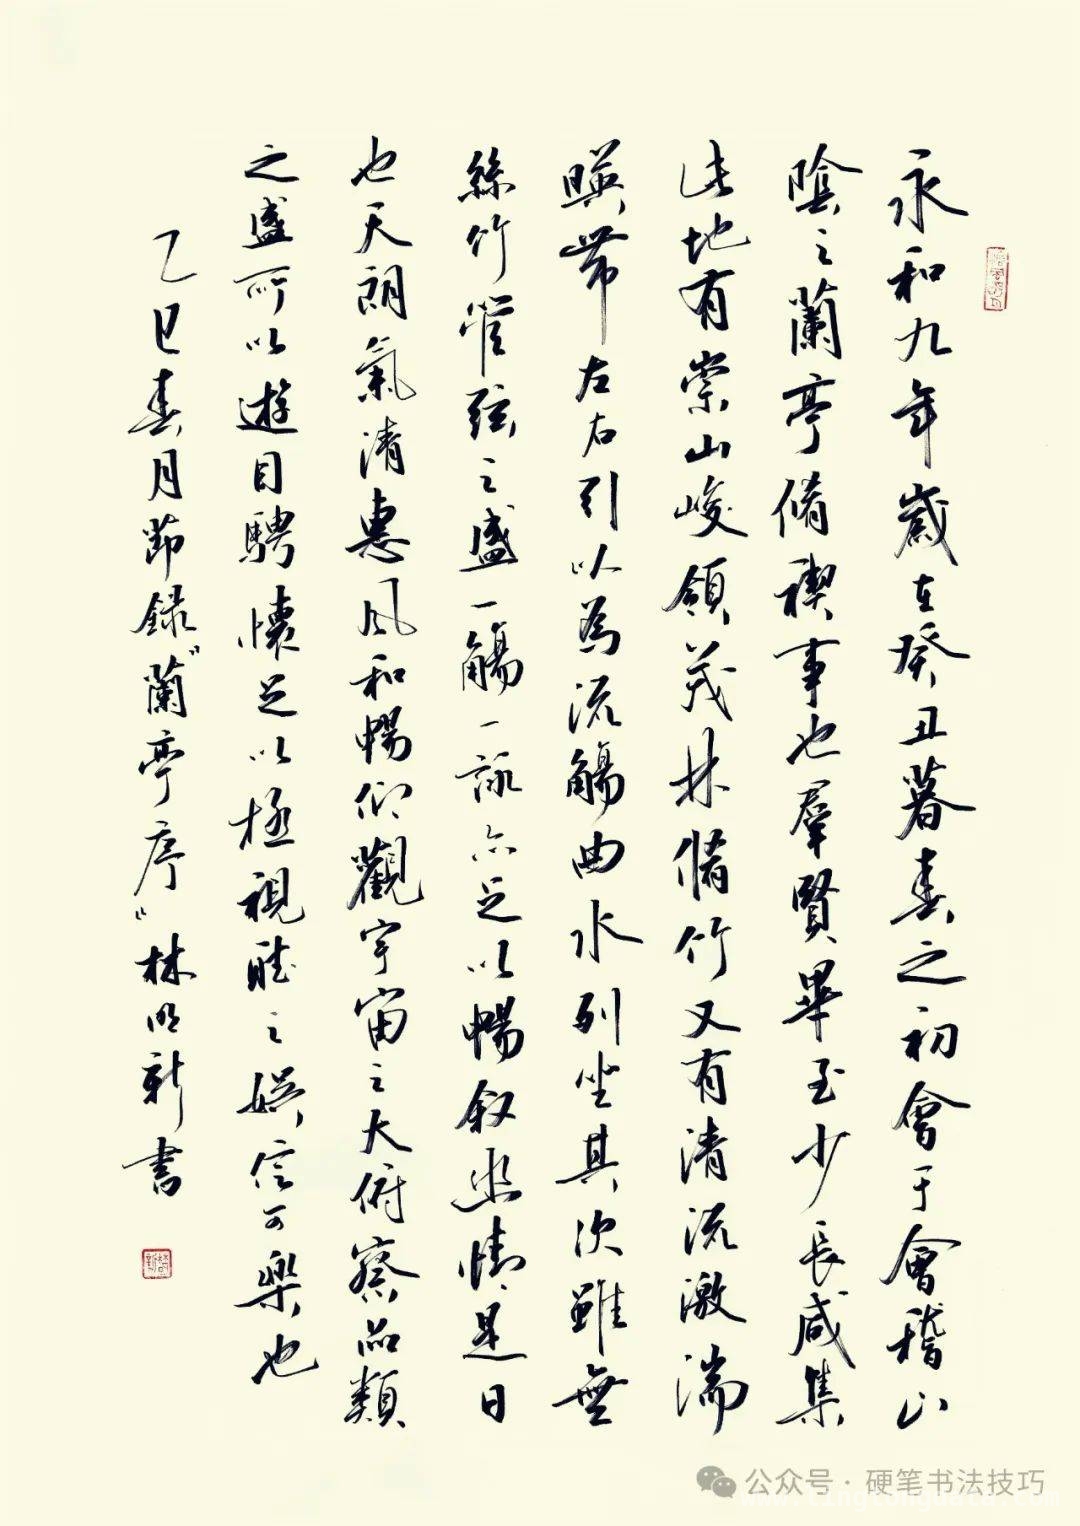 永和九年歲在癸丑暮春之初會于會稽山
陰之蘭亭脩禊事也羣賢畢至少長咸集
此地有崇山峻領茂林脩竹又有清流激湍
暎帶左右引以為流觴曲水列坐其次雖無
絲竹管弦之盛一觴一詠亦足以暢叙幽情是日
也天朗氣清惠風和暢仰觀宇宙之大俯察品類
之盛所以遊目騁懷足以極視聽之娛信可樂也
乙巳春月節録"蘭亭序"林明新書
公众号 · 硬笔书法技巧